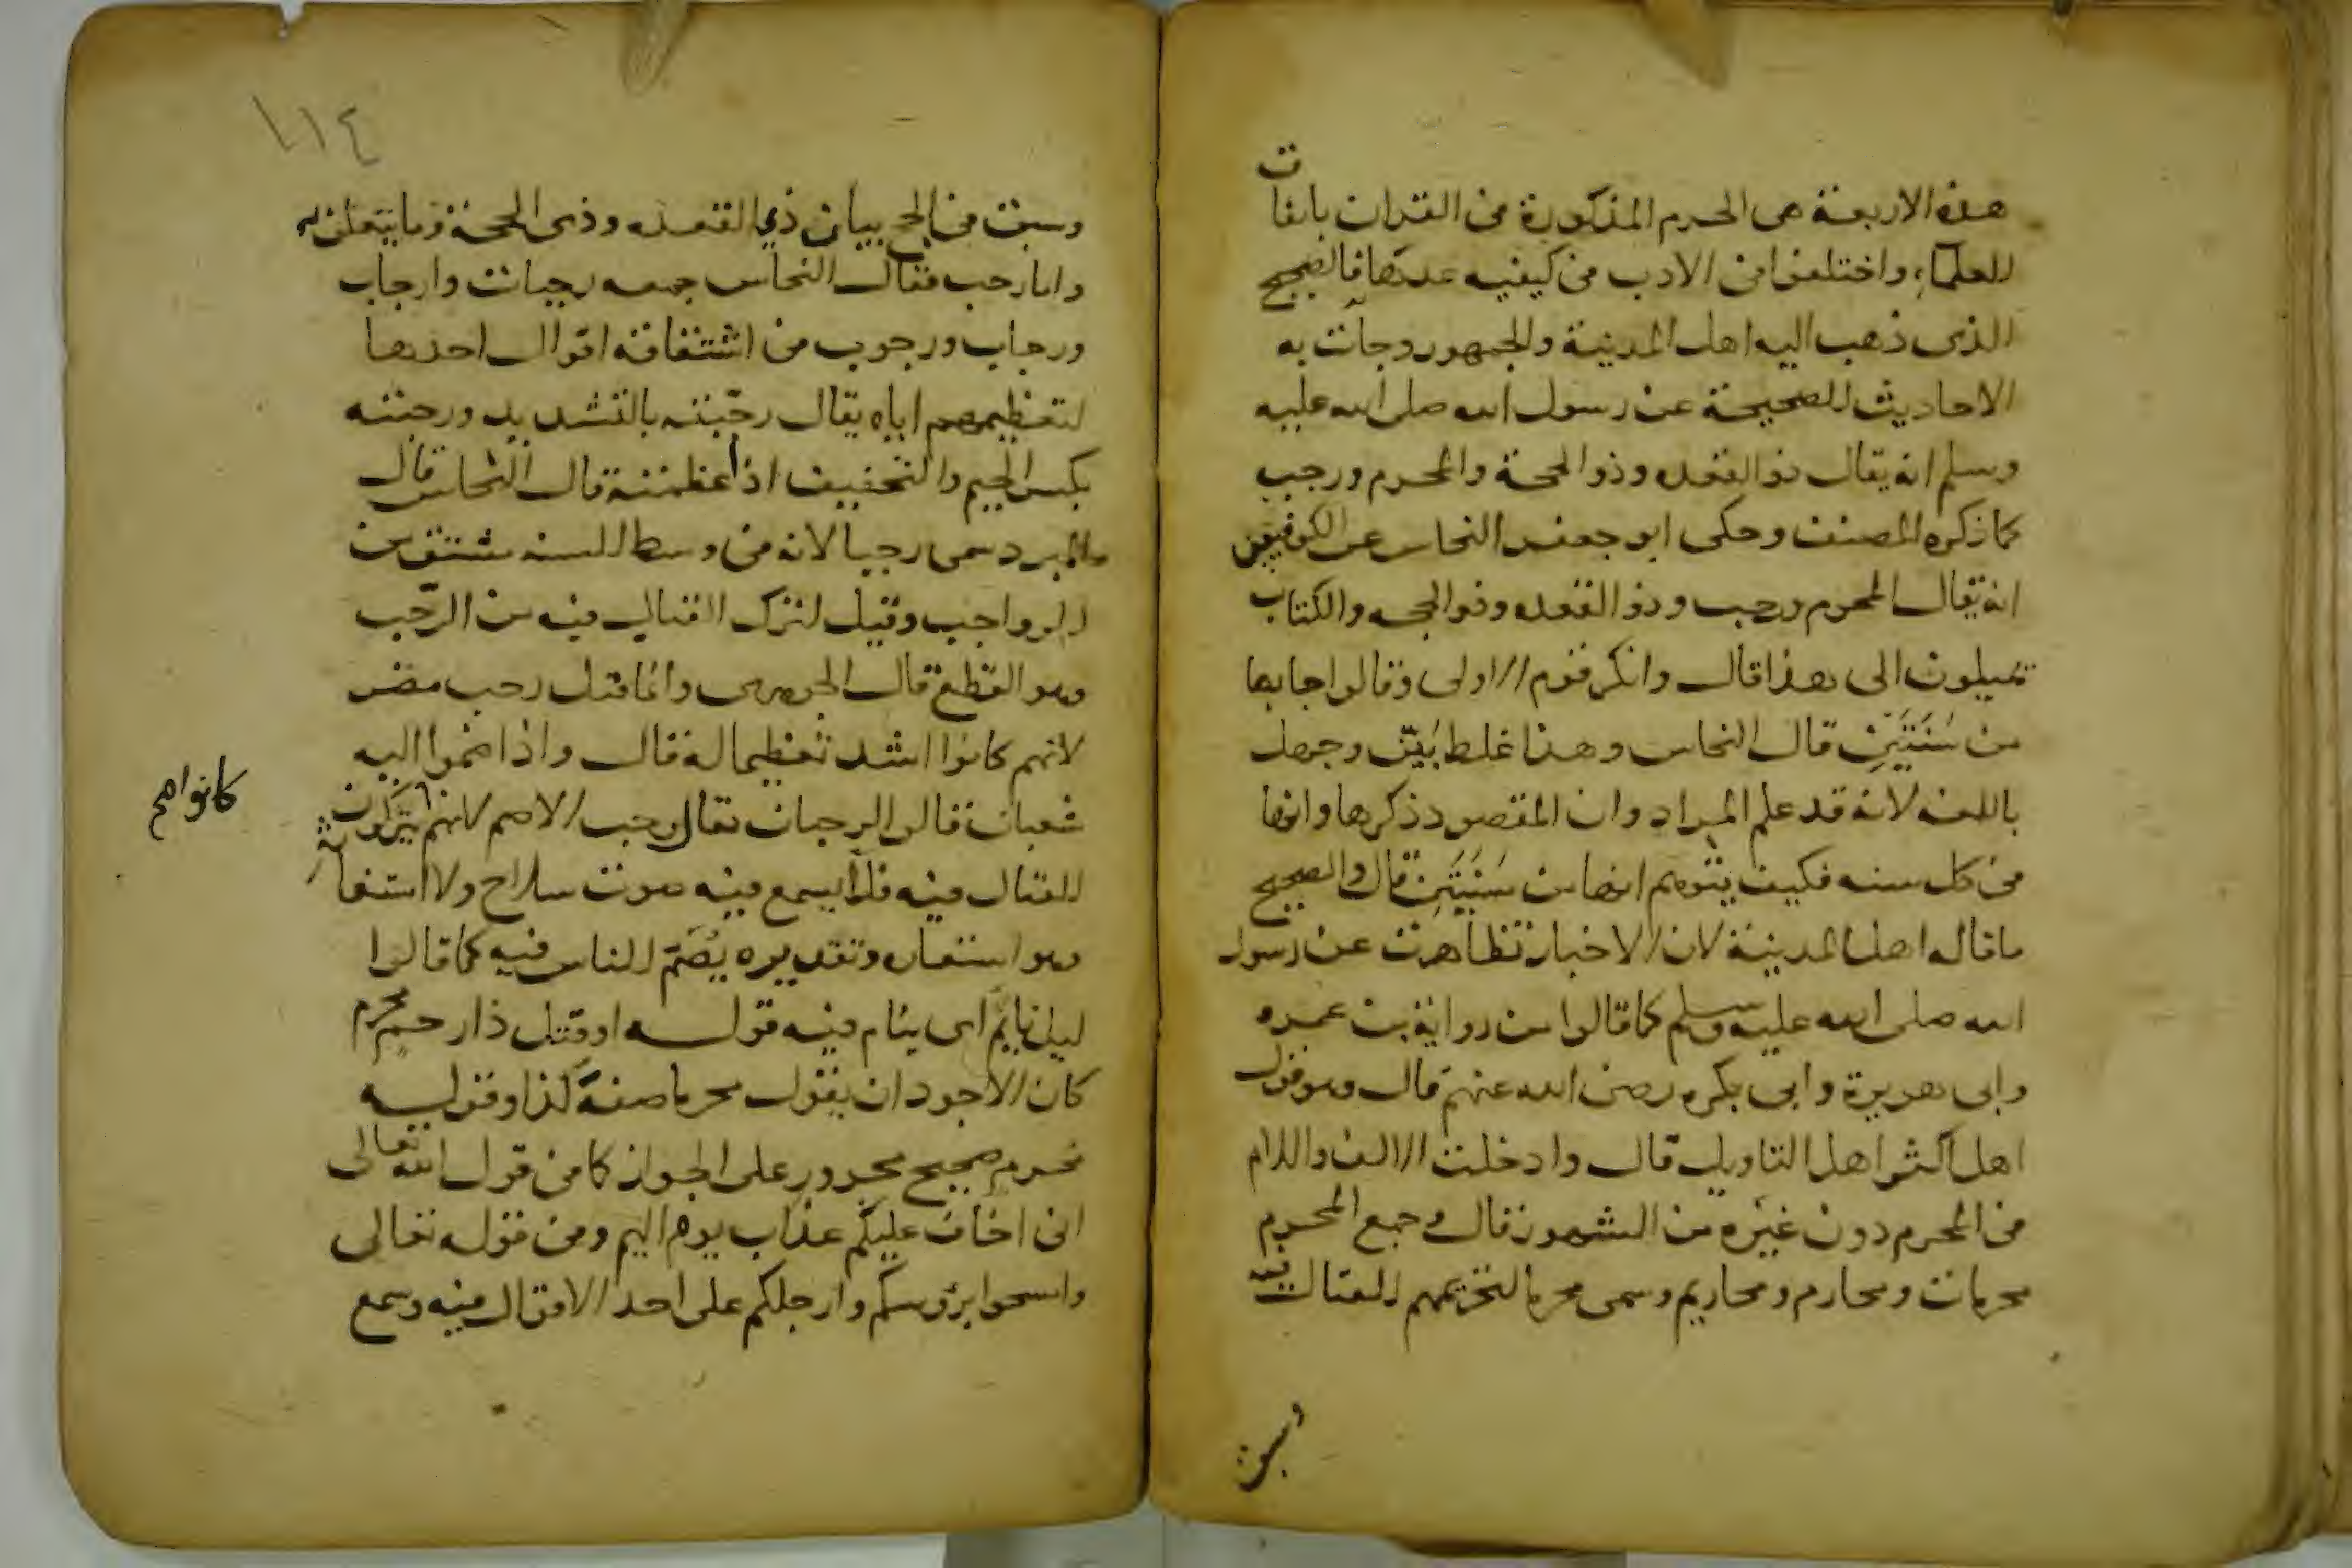 هذه الاربعة هى الحرم المذكورة فى القران باتفاق
للعلماء واختلفوا فى الادب فى كيفيه عدتها فالصحيح
الذى ذهب اليه اهل المدينة والجمهور وجآت به
الاحاديث الصحيحة عن رسول الله صلى الله عليه
وسلم انه يقال ذو القعده وذو الحجة والمحرم ورجب
كما ذكره المصنف وحكى ابو جعفر النحاس عن الكوفيين
انه يقال المحرم ورجب وذو القعده وذو الحجه والكتاب
يميلون الى هذا قال وانكر قوم الاولى وقالوا جا بها
من سَنَتَيْنِ قال النحاس وهذا غلط بَيّن وجهل
باللغه لانه قد علم المراد وان المقصود ذكرها وانها
فى كل سنه فكيف يتوهم انها من سَنَتَيَنِ قال والصحيح
ما قاله اهل المدينة لان الاخبار تظاهرت عن رسول
الله صلى الله عليه وسلم كما قالوا من رواية بن عمره
وابى هريرة وابى بكره رضى الله عنهم قال وهو قول
اهل اكثر اهل التاويل قال وادخلت الالف واللام
فى المحرم دون غيره من الشهور قال وجمع المحرم
محرمات ومحارم ومحاريم وسمى محرما لتحريمهم القتال فيه
وسبق
١١٤
وسبق فى الحج بيان ذي القعده وذى الحجة وما يتعلق به
واما رجب فقال النحاس جمعه رجبات وارجاب
ورجاب ورجوب فى اشتقاقه اقوال احدها
لتعظيمهم اياه يقال رجّبته بالتشديد ورجبته
بكسر الجيم والتخفيف اذا عظمته قال النحاس قال
المبرد سمى رجبا لانه فى وسط السنه مشتق من
الرواجب وقيل لترك القتال فيه من الرّجب
وهو القطع قال الجوهرى وانما قيل رجب مضر
لانهم كانوا اشد تعظيما له قال واذا ضموا اليه
شعبان قالوا الرجبان يقال رجب الاصم لانهم يتركون
كانوا صح
القتال فيه فلا يسمع فيه صوت سلاح ولا استغاثه
وهو استعاره وتقديره يُصَمّ الناس فيه كما قالوا
ليل نايم اى ينام فيه قوله او قتل ذا رحم محرم
كان الاجود ان يقول محرما صفة لذا وقوله
محرم صحيح مجرور على الجوار كما فى قول الله تعالى
انى اخاف عليكم عذاب يوم اليم ومن قوله تعالى
وامسحوا برؤسكم وارجلكم على احد الاقوال فيه وسمع